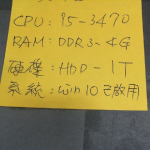 CPU: i5-3470
RAM: DDR3-4G
硬碟: HDD-1T
系統: win10已啟用